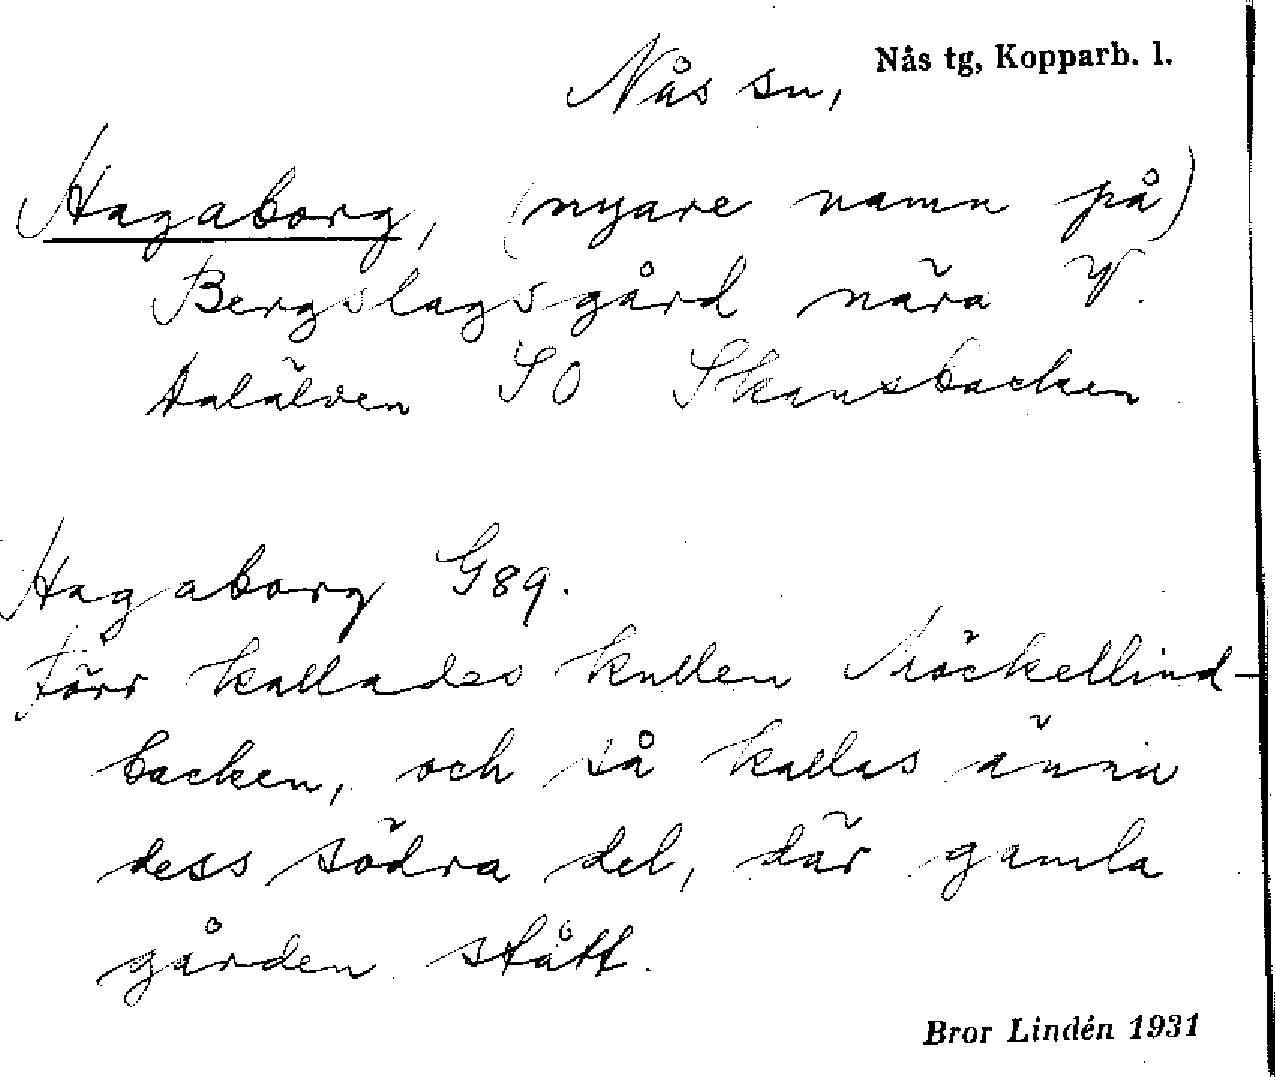 Nås sn, Nås tg, Kopparb. l.
Hagaborg, (nyare namn på)
Bergslagsgård nära V.
Dalälven SO Skansbacken
Hagaborg G89.
Förr kallades kullen Möckellind-
backen, och så kallas ännu
dess södra del, där gamla
gården stått.
Bror Lindén 1931